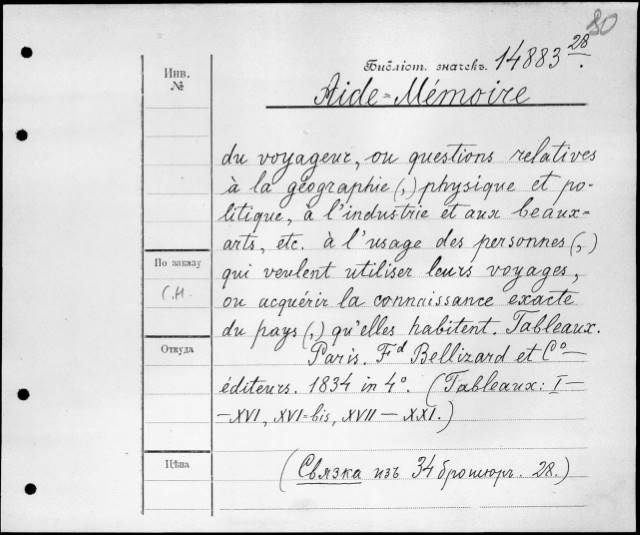 80
Инв.
№
Библіот. значекъ. 14883 28.
Aide-Mémoire
du voyageur, ou questions relatives
à la géographie (,) physique et po-
litique, à l'industrie et aux beaux-
arts, etc. à l'usage des personnes (,)
По заказу
qui veulent utiliser leurs voyages,
С.Н
ou acquérir la connaissance exacte
du pays (,) qu'elles habitent. Tableaux.
Откуда
Paris. Fd Bellizard et Co —
éditeurs. 1834 in 4o. (Tableaux: I—
—XVI, XVI-bis, XVII — XXI.)
Цѣна
(Связка изъ 34 брошюръ. 28.)